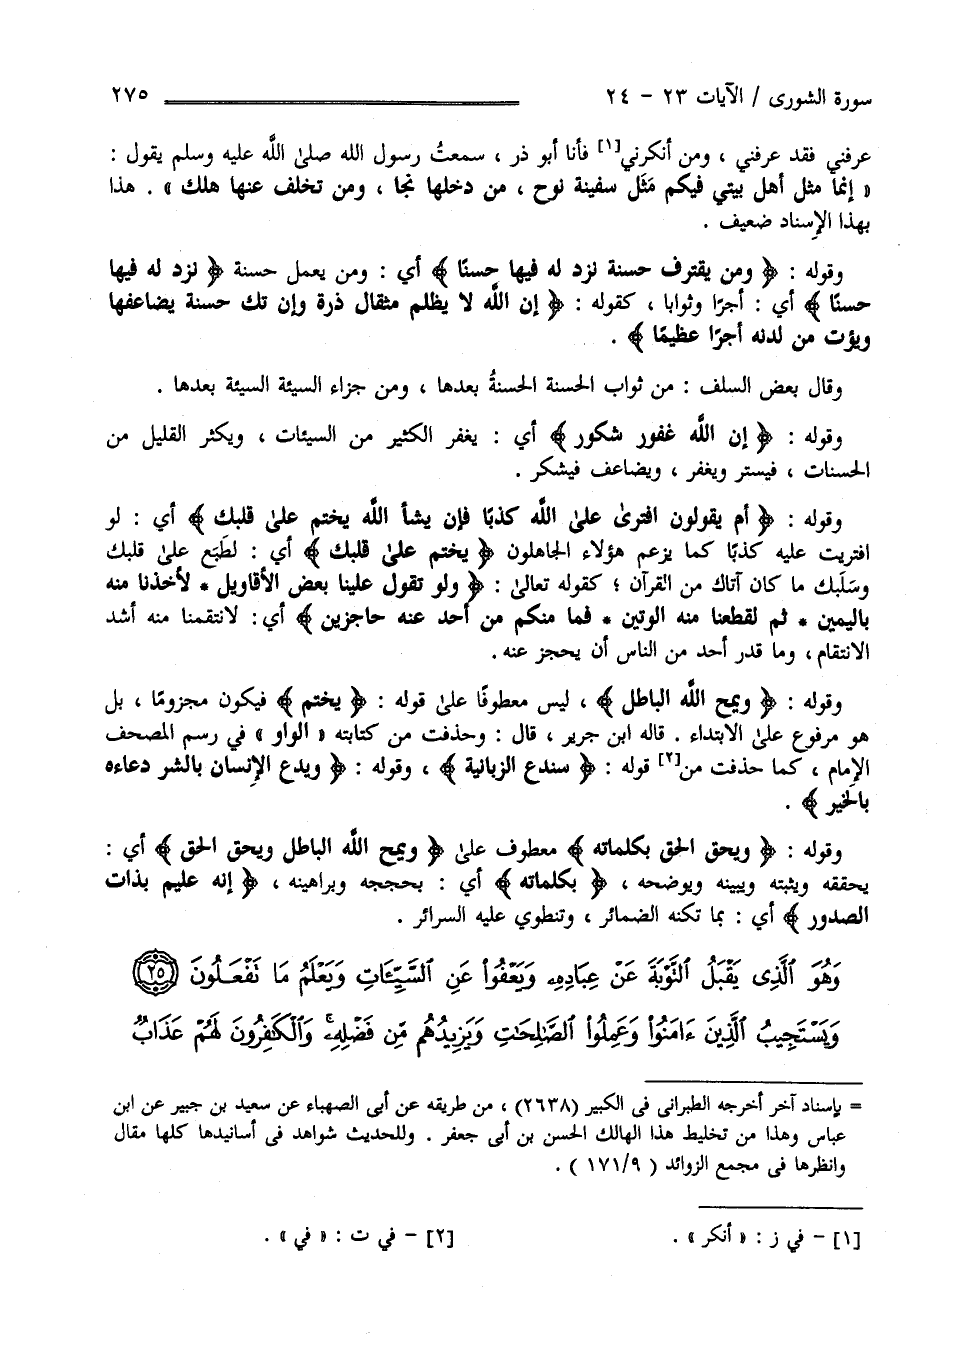 سورة الشورى / الآيات ٢٣ – ٢٤ ٢٧٥
عرفني فقد عرفني ، ومن أنكرني[١] فأنا أبو ذر ، سمعتُ رسول الله صلىٰ اللَّه عليه وسلم يقول :
« إنما مثل أهل بيتي فيكم مَثَل سفينة نوح ، من دخلها نجا ، ومن تخلف عنها هلك » . هذا
بهذا الإسناد ضعيف .
وقوله : ﴿ ومن يقترف حسنة نزد له فيها حسنًا ﴾ أي : ومن يعمل حسنة ﴿ نزد له فيها
حسنًا ﴾ أي : أجرًا وثوابا ، كقوله : ﴿ إن اللَّه لا يظلم مثقال ذرة وإن تك حسنة يضاعفها
ويؤت من لدنه أجرًا عظيمًا ﴾ .
وقال بعض السلف : من ثواب الحسنة الحسنةُ بعدها ، ومن جزاء السيئة السيئة بعدها .
وقوله : ﴿ إن اللَّه غفور شكور ﴾ أي : يغفر الكثير من السيئات ، ويكثر القليل من
الحسنات ، فيستر ويغفر ، ويضاعف فيشكر .
وقوله : ﴿ أم يقولون افترىٰ علىٰ اللَّه كذبًا فإن يشأ اللَّه يختم علىٰ قلبك ﴾ أي : لو
افتريت عليه كذبًا كما يزعم هؤلاء الجاهلون ﴿ يختم علىٰ قلبك ﴾ أي : لطَبَع علىٰ قلبك
وسَلَبك ما كان آتاك من القرآن ؛ كقوله تعالىٰ : ﴿ ولو تقول علينا بعض الأقاويل * لأخذنا منه
باليمين * ثم لقطعنا منه الوتين * فما منكم من أحد عنه حاجزين ﴾ أي: لانتقمنا منه أشد
الانتقام، وما قدر أحد من الناس أن يحجز عنه.
وقوله : ﴿ ويمح اللَّه الباطل ﴾ ، ليس معطوفًا علىٰ قوله : ﴿ يختم ﴾ فيكون مجزومًا ، بل
هو مرفوع علىٰ الابتداء . قاله ابن جرير ، قال : وحذفت من كتابته « الواو » في رسم المصحف
الإمام ، كما حذفت من[٢] قوله : ﴿ سندع الزبانية ﴾ ، وقوله : ﴿ ويدع الإنسان بالشر دعاءه
بالخير ﴾ .
وقوله : ﴿ ويحق الحق بكلماته ﴾ معطوف علىٰ ﴿ ويمح اللَّه الباطل ويحق الحق ﴾ أي :
يحققه ويثبته ويبينه ويوضحه ، ﴿ بكلماته ﴾ أي : بحججه وبراهينه ، ﴿ إنه عليم بذات
الصدور ﴾ أي : بما تكنه الضمائر ، وتنطوي عليه السرائر .
وَهُوَ ٱلَّذِى يَقْبَلُ ٱلتَّوْبَةَ عَنْ عِبَادِهِۦ وَيَعْفُواْ عَنِ ٱلسَّيِّـَٔاتِ وَيَعْلَمُ مَا تَفْعَلُونَ ٢٥
وَيَسْتَجِيبُ ٱلَّذِينَ ءَامَنُواْ وَعَمِلُواْ ٱلصَّٰلِحَٰتِ وَيَزِيدُهُم مِّن فَضْلِهِۦ ۚ وَٱلْكَٰفِرُونَ لَهُمْ عَذَابٌ
= بإسناد آخر أخرجه الطبرانى فى الكبير (٢٦٣٨) ، من طريقه عن أبى الصهباء عن سعيد بن جبير عن ابن
عباس وهذا من تخليط هذا الهالك الحسن بن أبى جعفر . وللحديث شواهد فى أسانيدها كلها مقال
وانظرها فى مجمع الزوائد ( ١٧١/٩ ) .
[١] – في ز : « أنكر » . [٢] – في ت : « في » .